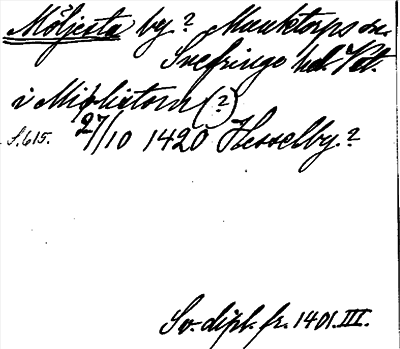 Möljesta by? Munktorps sn.
Snefringe hd. Vstl.
i Miklistom (?)
S. 615. 27/10 1420 Hesselby.?
Sv. dipl. fr. 1401. III.